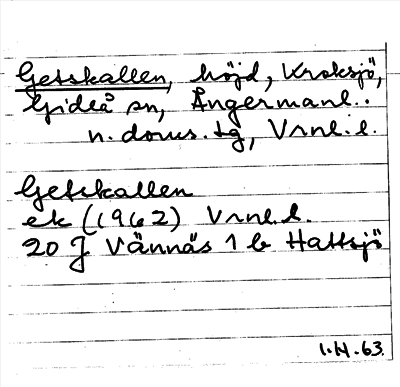 Getskallen, höjd, Kroksjö,
Gideå sn, Ångermanl..
n. doms. tg, Vrnl. l.
Getskallen
ek (1962) Vrnl. l.
20 J Vännäs 1 b Hattsjö
63.